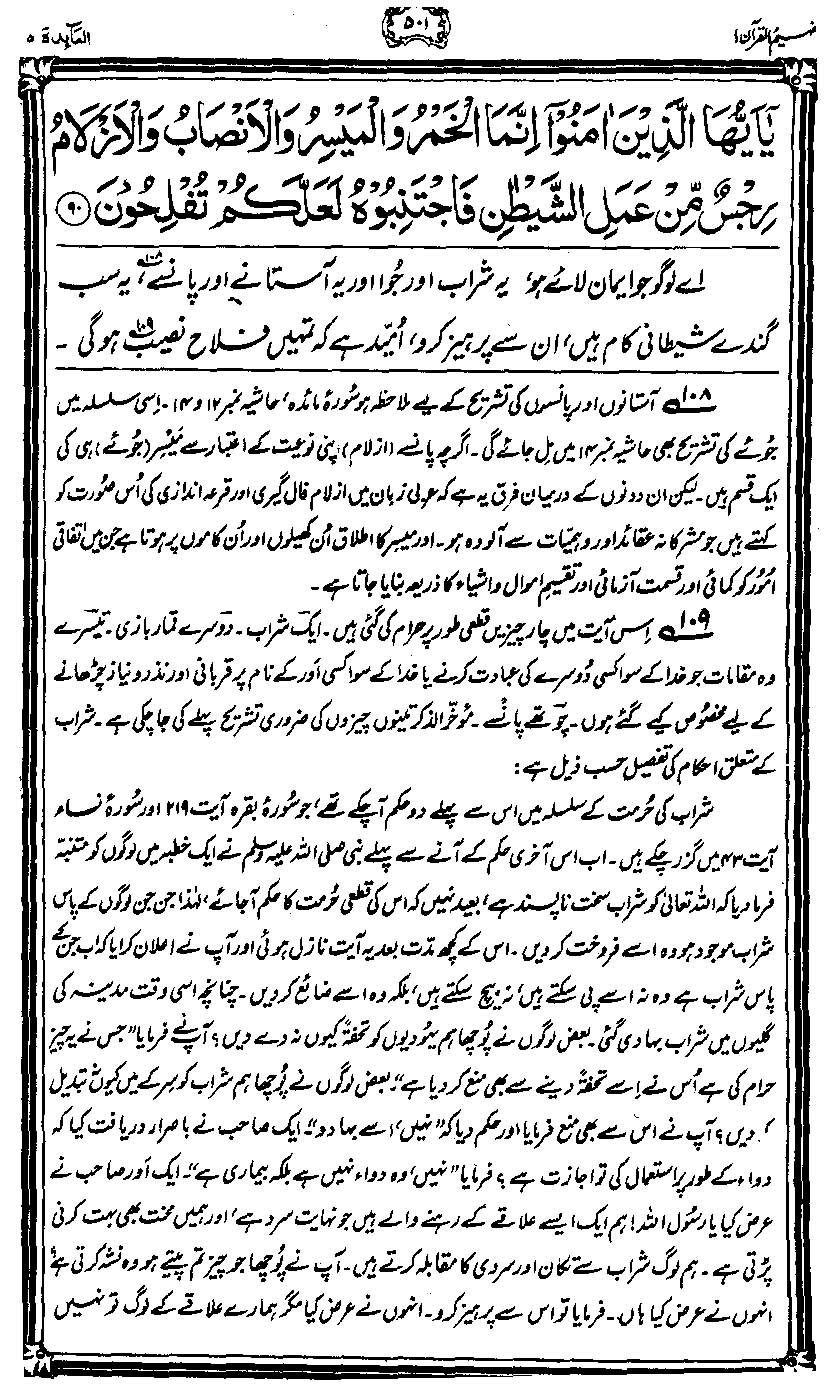 تفہیم القرآن ۱
۵۰۱
المآئدة ۵
يٰۤاَيُّهَا الَّذِيْنَ اٰمَنُوْۤا اِنَّمَا الْخَمْرُ وَالْمَيْسِرُ وَالْاَنْصَابُ وَالْاَزْلَامُ
رِجْسٌ مِّنْ عَمَلِ الشَّيْطٰنِ فَاجْتَنِبُوْهُ لَعَلَّكُمْ تُفْلِحُوْنَ ﴿۹۰﴾
اے لوگو جو ایمان لائے ہو، یہ شراب اور جُوا اور یہ آستانے اور پانسے۱۰۸، یہ سب
گندے شیطانی کام ہیں، ان سے پرہیز کرو، اُمیّد ہے کہ تمہیں فلاح نصیب۱۰۹ ہوگی ۔
۱۰۸ آستانوں اور پانسوں کی تشریح کے لیے ملاحظہ ہو سُورۂ مائدہ، حاشیہ نمبر ۱۲ و ۱۴۔ اِسی سلسلہ میں
جُوئے کی تشریح بھی حاشیہ نمبر ۱۴ میں مِل جائے گی۔ اگرچہ پانسے (ازلام) اپنی نوعیت کے اعتبار سے مَیْسِر (جُوئے) ہی کی
ایک قسم ہیں۔ لیکن ان دونوں کے درمیان فرق یہ ہے کہ عربی زبان میں ازلام فال گیری اور قرعہ اندازی کی اُس صُورت کو
کہتے ہیں جو مشرکانہ عقائد اور وہمیّات سے آلودہ ہو۔ اور میسر کا اطلاق اُن کھیلوں اور اُن کاموں پر ہوتا ہے جن میں اتفاقی
اُمُور کو کمائی اور قسمت آزمائی اور تقسیمِ اموال و اشیاء کا ذریعہ بنایا جاتا ہے۔
۱۰۹ اِس آیت میں چار چیزیں قطعی طور پر حرام کی گئی ہیں۔ ایک شراب۔ دوسرے قمار بازی۔ تیسرے
وہ مقامات جو خدا کے سوا کسی دُوسرے کی عبادت کرنے یا خدا کے سوا کسی اَور کے نام پر قربانی اور نذر و نیاز چڑھانے
کے لیے مخصُوص کیے گئے ہوں۔ چوتھے پانسے۔ مؤخّر الذکر تینوں چیزوں کی ضروری تشریح پہلے کی جا چکی ہے۔ شراب
کے متعلق احکام کی تفصیل حسب ذیل ہے:
شراب کی حُرمت کے سلسلہ میں اس سے پہلے دو حکم آ چکے تھے، جو سُورۂ بقرہ آیت ۲۱۹ اور سُورۂ نساء
آیت ۴۳ میں گزر چکے ہیں۔ اب اس آخری حکم کے آنے سے پہلے نبی صلی اللہ علیہ وسلم نے ایک خطبہ میں لوگوں کو متنبّہ
فرما دیا کہ اللہ تعالیٰ کو شراب سخت ناپسند ہے، بعید نہیں کہ اس کی قطعی حُرمت کا حکم آ جائے، لہٰذا جن جن لوگوں کے پاس
شراب موجود ہو وہ اسے فروخت کر دیں۔ اس کے کچھ مدّت بعد یہ آیت نازل ہوئی اور آپ نے اعلان کرایا کہ اب جن کے
پاس شراب ہے وہ نہ اسے پی سکتے ہیں، نہ بیچ سکتے ہیں، بلکہ وہ اسے ضائع کر دیں۔ چنانچہ اسی وقت مدینہ کی
گلیوں میں شراب بہا دی گئی۔ بعض لوگوں نے پُوچھا ہم یہُودیوں کو تحفۃً کیوں نہ دے دیں؟ آپ نے فرمایا ”جس نے یہ چیز
حرام کی ہے اُس نے اِسے تحفۃً دینے سے بھی منع کر دیا ہے“۔ بعض لوگوں نے پُوچھا ہم شراب کو سِرکے میں کیوں نہ تبدیل
کر دیں؟ آپ نے اس سے بھی منع فرمایا اور حکم دیا کہ ”نہیں، اسے بہا دو“۔ ایک صاحب نے باصرار دریافت کیا کہ
دواء کے طور پر استعمال کی تو اجازت ہے؟ فرمایا ”نہیں، وہ دواء نہیں ہے بلکہ بیماری ہے“۔ ایک اَور صاحب نے
عرض کیا یا رسُول اللہ! ہم ایک ایسے علاقے کے رہنے والے ہیں جو نہایت سرد ہے، اور ہمیں محنت بھی بہت کرنی
پڑتی ہے۔ ہم لوگ شراب سے تکان اور سردی کا مقابلہ کرتے ہیں۔ آپ نے پُوچھا جو چیز تم پیتے ہو وہ نشہ کرتی ہے؟
انہوں نے عرض کیا ہاں۔ فرمایا تو اس سے پرہیز کرو۔ انہوں نے عرض کیا مگر ہمارے علاقے کے لوگ تو نہیں